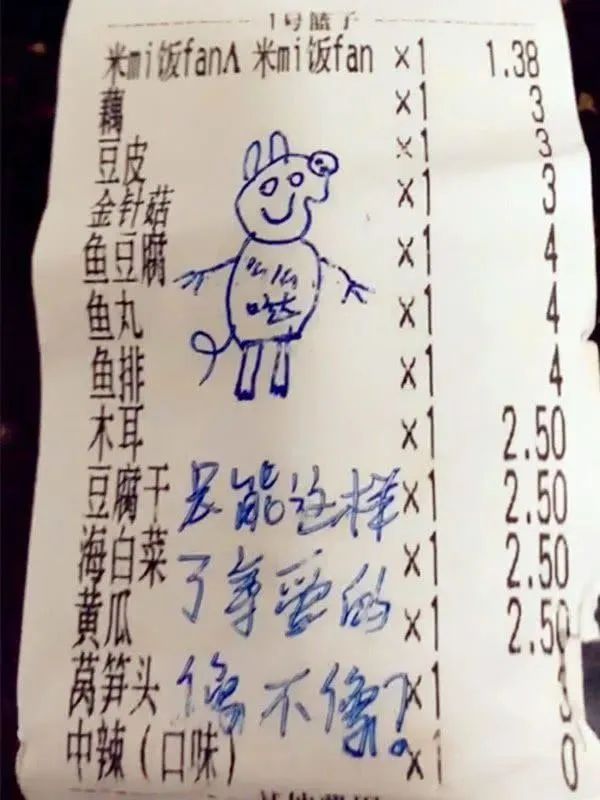 1号篮子
米mi饭fanA 米mi饭fan ×1 1.38
藕 ×1 3
豆皮 ×1 3
金针菇 ×1 3
鱼豆腐 ×1 4
鱼丸 ×1 4
鱼排 ×1 4
木耳 ×1 2.50
豆腐干 ×1 2.50
海白菜 ×1 2.50
黄瓜 ×1 2.50
莴笋头 ×1 3
中辣(口味) ×1 0
么么
哒
只能这样
了亲爱的
像不像?